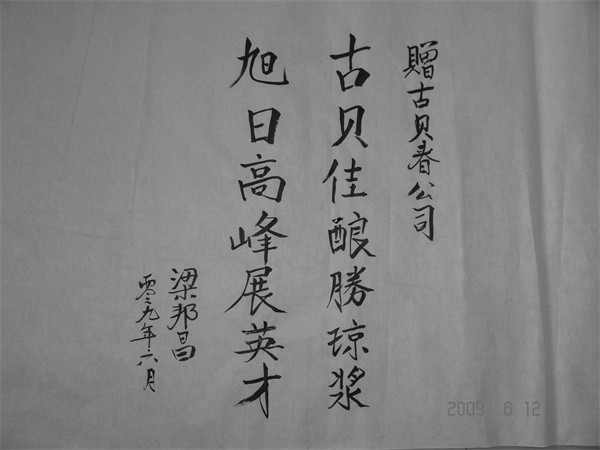 贈古贝春公司
古贝佳酿勝琼浆
旭日高峰展英才
梁邦昌
零零九年六月
2009 6 12